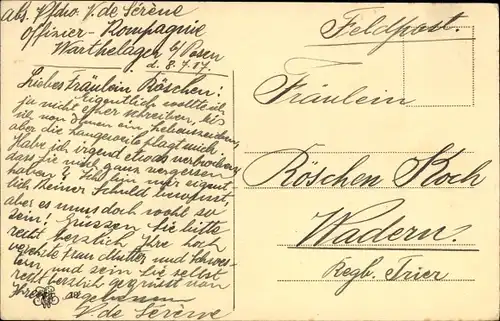 abs. Pftro. V. de Sérène
Offizier-Kompagnie
Warthelager b/ Posen
d. 8.7.17.
Liebes Fräulein Röschen!
Eigentlich wollte ich
ja nicht eher schreiben, bis
ich von Ihnen ein Lebenszeichen,
aber die Langeweile plagt mich.
Habe ich irgend etwas verbrochen,
dass Sie mich ganz vergessen
haben? Ich bin mir eigent-
lich keiner Schuld bewusst,
aber es muss doch wohl so
sein! Grüssen Sie bitte
recht herzlich Ihre hoch
verehrte Frau Mutter und Schwes-
terlein, und sein Sie selbst
recht herzlich gegrüsst von
Ihrem
V. de Sérène
Feldpost.
Fräulein
Röschen Koch
Wadern.
Regb. Trier